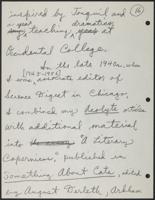 inspired by Ingrid and (16)
a year's dramatics
teaching, at
Occidental College.
In the late 1940s, when
(1945-1950)
I was associate editor of
Science Digest in Chicago,
I combined my acolyte articles
with additional material
into "A Literary
Copernicus," published in
Something About Cats, edited
by August Derleth, Arkham